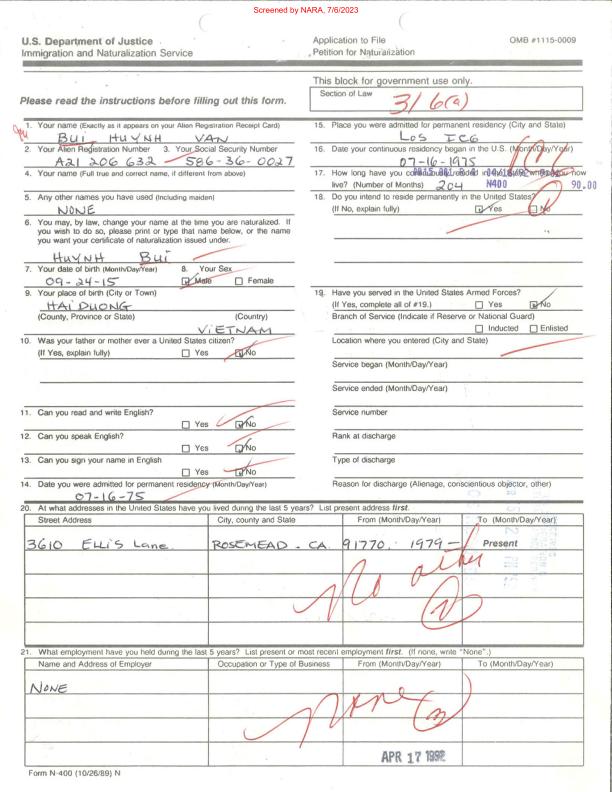 Screened by NARA, 7/6/2023
U.S. Department of Justice
Immigration and Naturalization Service
Application to File
Petition for Naturalization
OMB #1115-0009
Please read the instructions before filling out this form.
This block for government use only.
Section of Law
316(a)
1. Your name (Exactly as it appears on your Alien Registration Receipt Card)
BUI HUYNH VAN
2. Your Alien Registration Number 3. Your Social Security Number
A21 206 632 586-36-0027
4. Your name (Full true and correct name, if different from above)
5. Any other names you have used (Including maiden)
NONE
6. You may, by law, change your name at the time you are naturalized. If
you wish to do so, please print or type that name below, or the name
you want your certificate of naturalization issued under.
HUYNH BUI
7. Your date of birth (Month/Day/Year) 8. Your Sex
09-24-15 Male Female
9. Your place of birth (City or Town)
HAI DUONG
(County, Province or State) (Country)
VIETNAM
10. Was your father or mother ever a United States citizen?
(If Yes, explain fully) Yes No
11. Can you read and write English?
Yes No
12. Can you speak English?
Yes No
13. Can you sign your name in English
Yes No
14. Date you were admitted for permanent residency (Month/Day/Year)
07-16-75
15. Place you were admitted for permanent residency (City and State)
LOS ICG
16. Date your continuous residency began in the U.S. (Month/Day/Year)
07-16-1975
17. How long have you now
live? (Number of Months) 204 N400 90.00
18. Do you intend to reside permanently in the United States?
(If No, explain fully) Yes No
19. Have you served in the United States Armed Forces?
(If Yes, complete all of #19.) Yes No
Branch of Service (Indicate if Reserve or National Guard)
Inducted Enlisted
Location where you entered (City and State)
Service began (Month/Day/Year)
Service ended (Month/Day/Year)
Service number
Rank at discharge
Type of discharge
Reason for discharge (Alienage, conscientious objector, other)
20. At what addresses in the United States have you lived during the last 5 years? List present address first.
Street Address City, county and State From (Month/Day/Year) To (Month/Day/Year)
3610 Ellis Lane. ROSEMEAD - CA. 91770. 1979 - Present
No other
21. What employment have you held during the last 5 years? List present or most recent employment first. (If none, write "None".)
Name and Address of Employer Occupation or Type of Business From (Month/Day/Year) To (Month/Day/Year)
NONE
None
APR 17 1992
Form N-400 (10/26/89) N